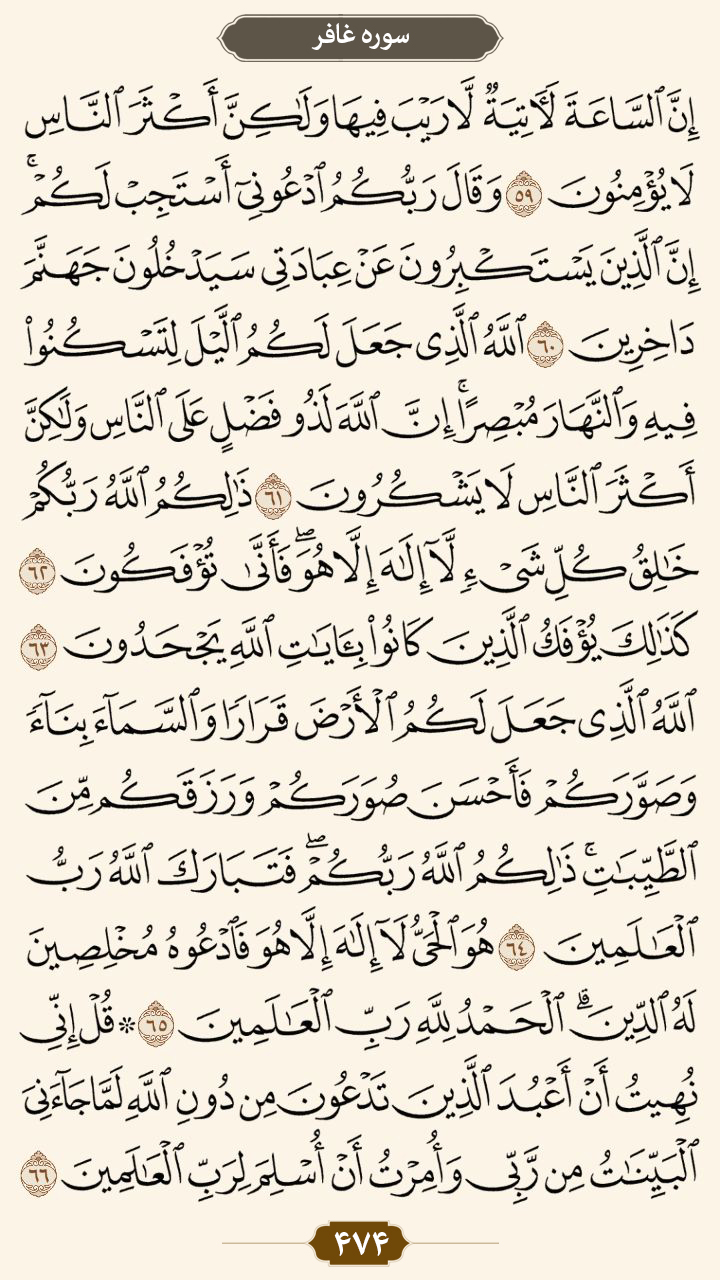 سوره غافر
إِنَّ ٱلسَّاعَةَ لَـَٔاتِيَةٌ لَّا رَيْبَ فِيهَا وَلَٰكِنَّ أَكْثَرَ ٱلنَّاسِ
لَا يُؤْمِنُونَ ٥٩ وَقَالَ رَبُّكُمُ ٱدْعُونِىٓ أَسْتَجِبْ لَكُمْ ۚ
إِنَّ ٱلَّذِينَ يَسْتَكْبِرُونَ عَنْ عِبَادَتِى سَيَدْخُلُونَ جَهَنَّمَ
دَاخِرِينَ ٦٠ ٱللَّهُ ٱلَّذِى جَعَلَ لَكُمُ ٱلَّيْلَ لِتَسْكُنُوا۟
فِيهِ وَٱلنَّهَارَ مُبْصِرًا ۚ إِنَّ ٱللَّهَ لَذُو فَضْلٍ عَلَى ٱلنَّاسِ وَلَٰكِنَّ
أَكْثَرَ ٱلنَّاسِ لَا يَشْكُرُونَ ٦١ ذَٰلِكُمُ ٱللَّهُ رَبُّكُمْ
خَٰلِقُ كُلِّ شَىْءٍ لَّآ إِلَٰهَ إِلَّا هُوَ ۖ فَأَنَّىٰ تُؤْفَكُونَ ٦٢
كَذَٰلِكَ يُؤْفَكُ ٱلَّذِينَ كَانُوا۟ بِـَٔايَٰتِ ٱللَّهِ يَجْحَدُونَ ٦٣
ٱللَّهُ ٱلَّذِى جَعَلَ لَكُمُ ٱلْأَرْضَ قَرَارًا وَٱلسَّمَآءَ بِنَآءً
وَصَوَّرَكُمْ فَأَحْسَنَ صُوَرَكُمْ وَرَزَقَكُم مِّنَ
ٱلطَّيِّبَٰتِ ۚ ذَٰلِكُمُ ٱللَّهُ رَبُّكُمْ ۖ فَتَبَارَكَ ٱللَّهُ رَبُّ
ٱلْعَٰلَمِينَ ٦٤ هُوَ ٱلْحَىُّ لَآ إِلَٰهَ إِلَّا هُوَ فَٱدْعُوهُ مُخْلِصِينَ
لَهُ ٱلدِّينَ ۗ ٱلْحَمْدُ لِلَّهِ رَبِّ ٱلْعَٰلَمِينَ ٦٥ ۞ قُلْ إِنِّى
نُهِيتُ أَنْ أَعْبُدَ ٱلَّذِينَ تَدْعُونَ مِن دُونِ ٱللَّهِ لَمَّا جَآءَنِىَ
ٱلْبَيِّنَٰتُ مِن رَّبِّى وَأُمِرْتُ أَنْ أُسْلِمَ لِرَبِّ ٱلْعَٰلَمِينَ ٦٦
۴۷۴